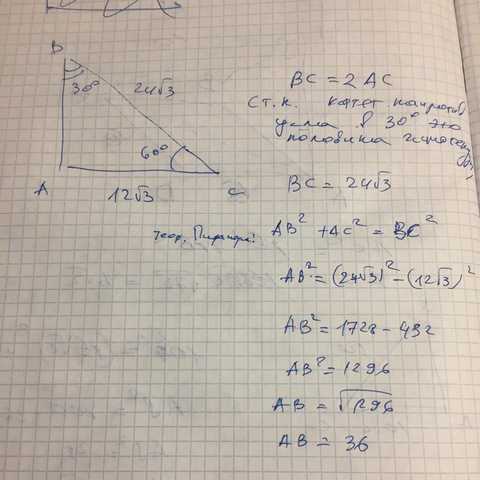 B
30°
24√3
60°
A
12√3
C
BC = 2AC
(т.к. катет напротив
угла в 30° это
половина гипотенузы,
BC = 24√3
теор. Пифагора:
AB² + AC² = BC²
AB² = (24√3)² - (12√3)²
AB² = 1728 - 432
AB² = 1296
AB = √1296
AB = 36